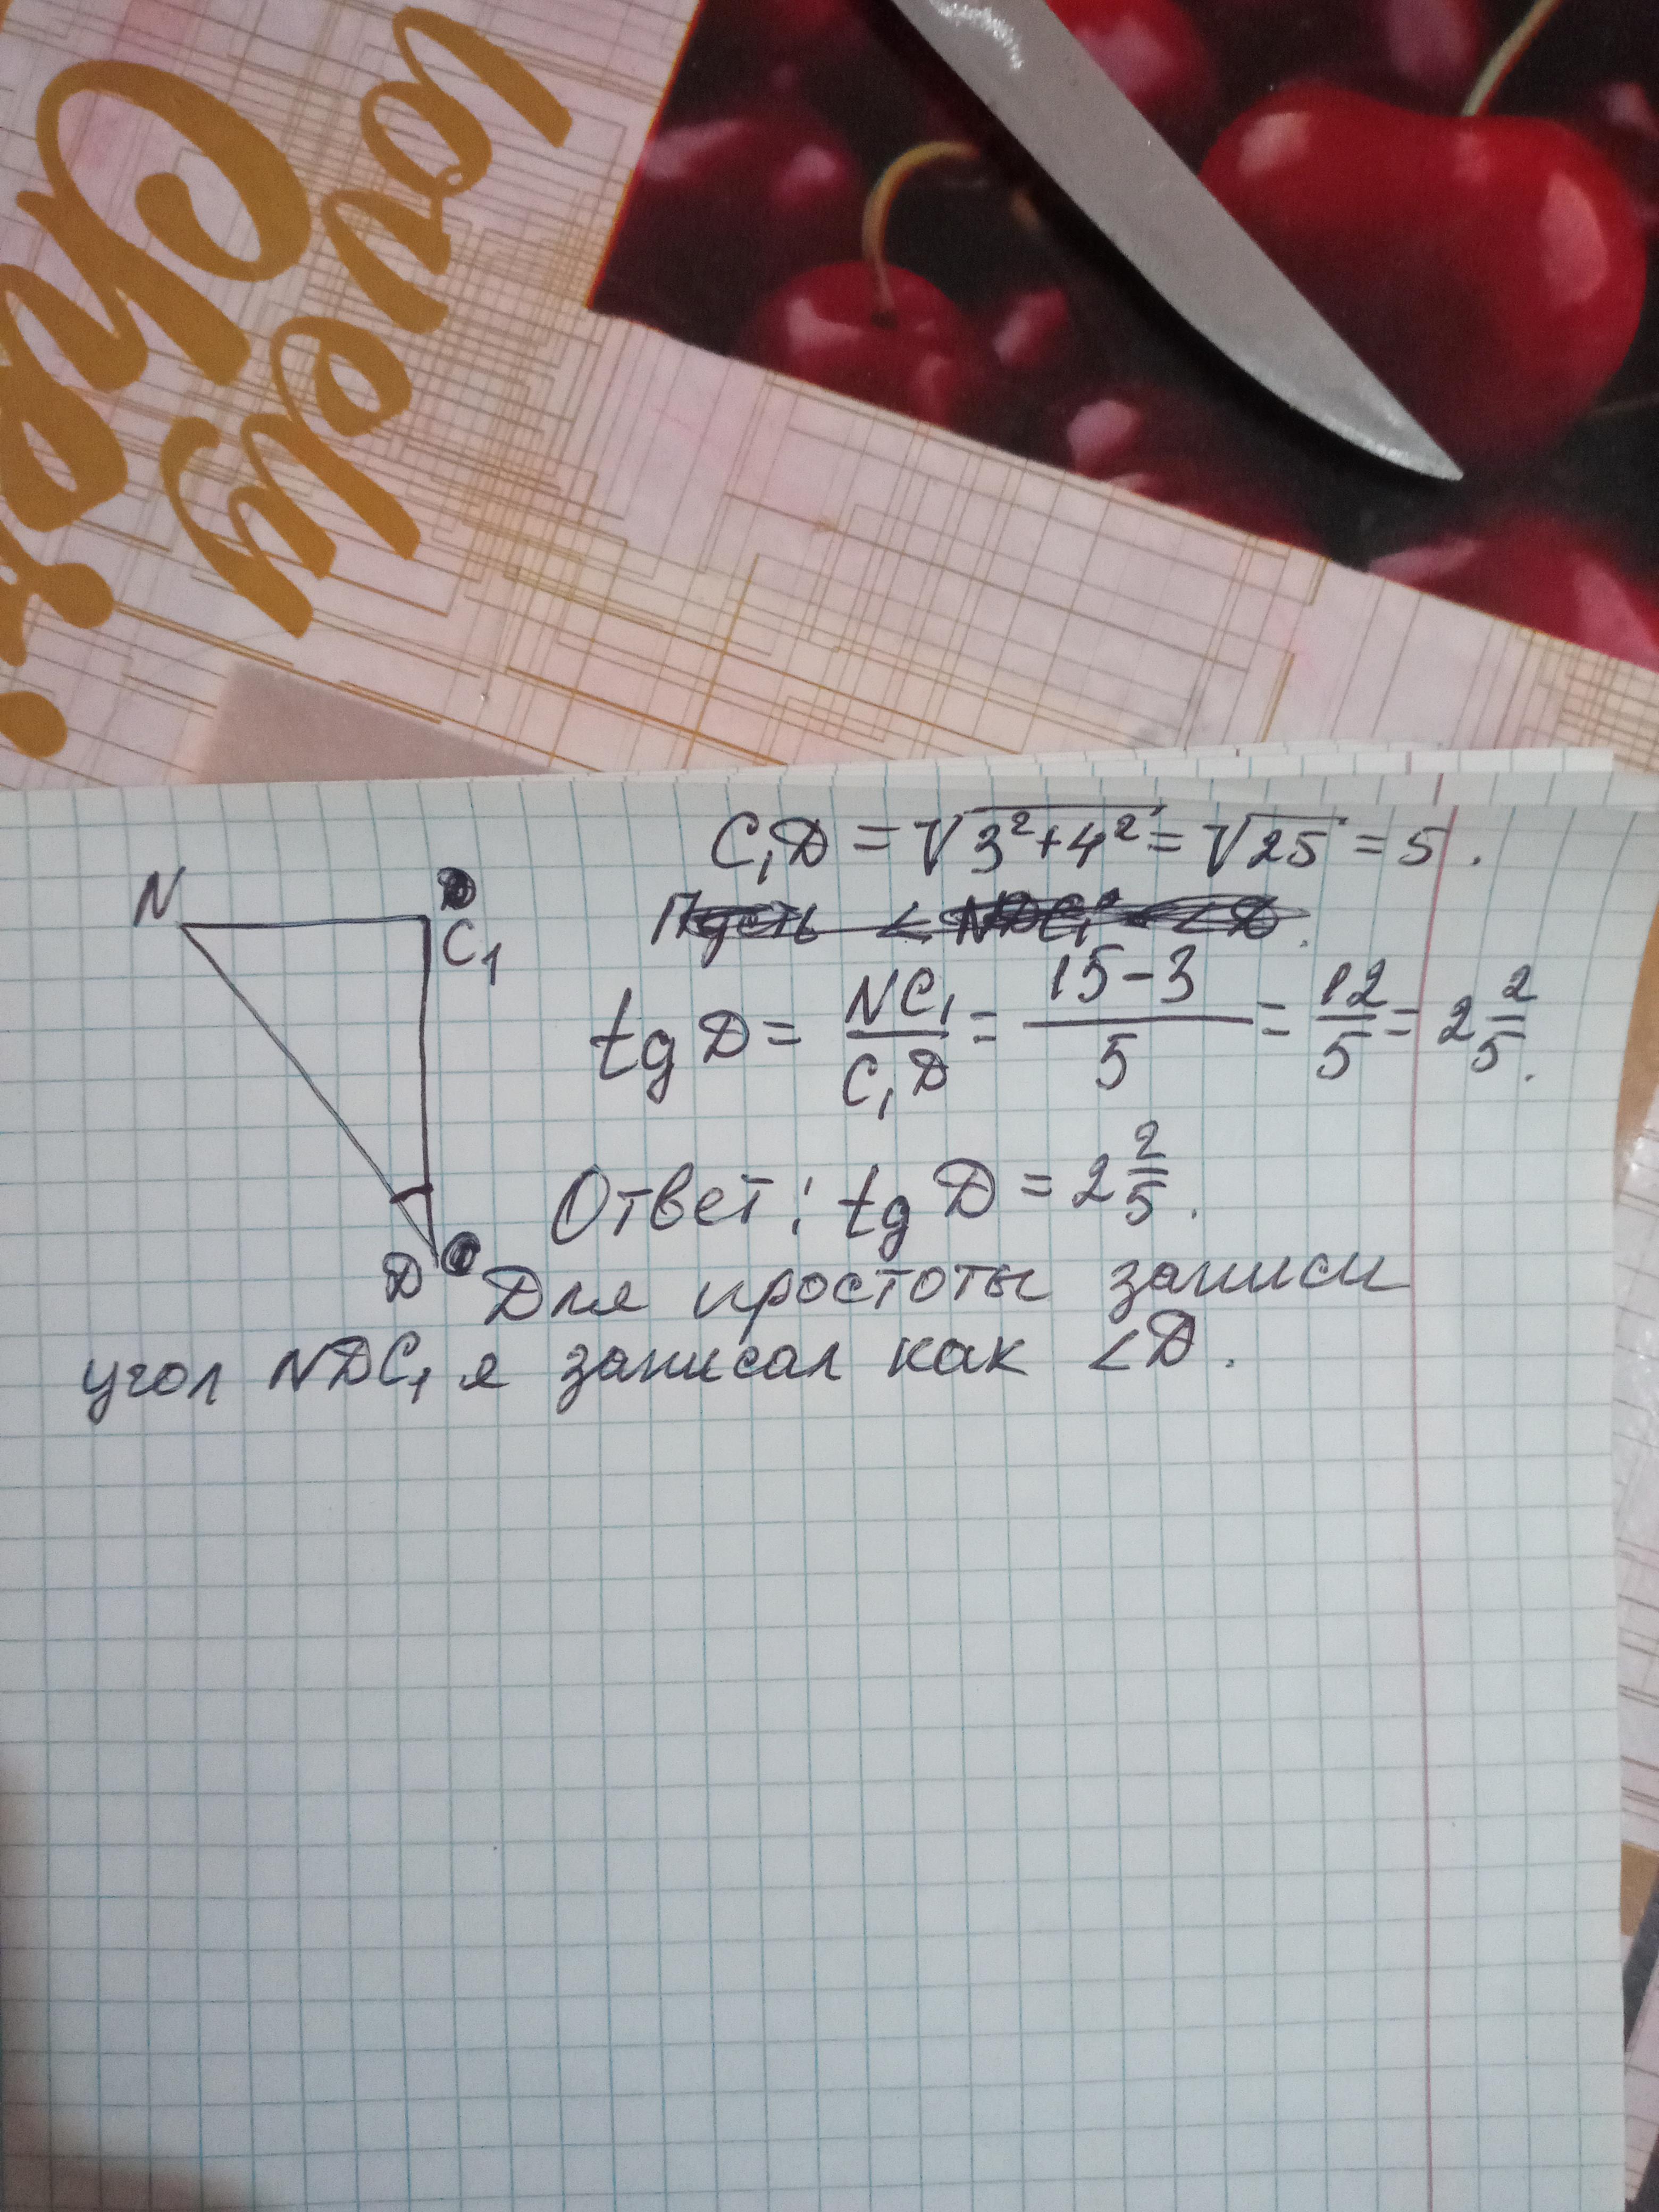 C₁D = √3²+4² = √25 = 5.
N
C₁
tg D = NC₁/C₁D = 15-3/5 = 12/5 = 2 2/5.
Ответ: tg D = 2 2/5.
D
Для простоты записи
угол NDC₁ я записал как ∠D.